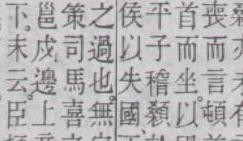 喪而言頓
首而坐以
平子稽顙
侯以失國
之過也無
策司馬喜
邕戍邊上
下末云臣